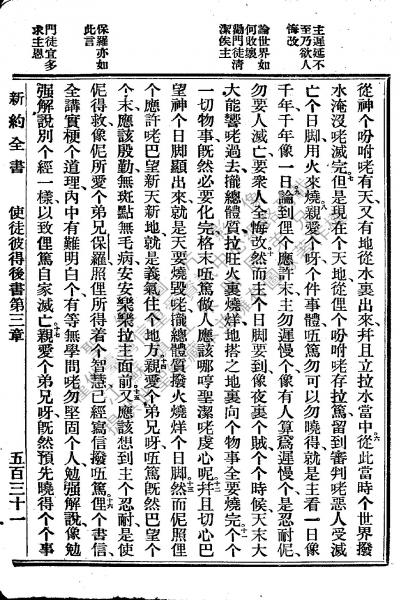 主遲延不
至乃欲人
悔改
論世界如
何收壞
勸門徒清
潔侯主
保羅亦如
此言
門徒宜多
求主恩
從神个吩咐咾有天又有地從水裏出來幷且立拉水當中從此當時个世界撥
水淹沒咾滅完但是現在个天地從俚个吩咐咾存拉篤留到審判咾惡人受滅
亡个日脚用火來燒親愛个呀个件事體伍篤勿可以勿曉得就是主看一日像
千年千年像一日論到俚个應許末主勿遲慢个像有人算爲遲慢个是忍耐伲
勿要人滅亡要衆人全悔改然而主个日脚要到像夜裏个賊个个時候天末大
大能響咾過去攏總體質拉旺火裏燒烊地搭之地裏向个物事全要燒完个个
一切物事旣然必要化完格末伍篤做人應該哪哼聖潔咾虔心呢幷且切心巴
望神个日脚顯出來就是天要燒毀咾攏總體質撥火燒烊个日脚然而伲照俚
个應許咾巴望新天新地就是義氣住个地方親愛个弟兄呀伍篤旣然巴望个
个末應該殷勤無斑點無毛病安安樂樂拉主面前又應該想到主个忍耐是使
伲得救像伲所愛个弟兄保羅照俚所得着个智慧已經寫信撥伍篤俚个書信
全講實梗个道理內中有難明白个有等無學問咾勿堅固个人勉强解說像勉
强解說別个經一樣以致俚篤自家滅亡親愛个弟兄呀旣然預先曉得个个事
新約全書 使徒彼得後書第三章 五百三十一